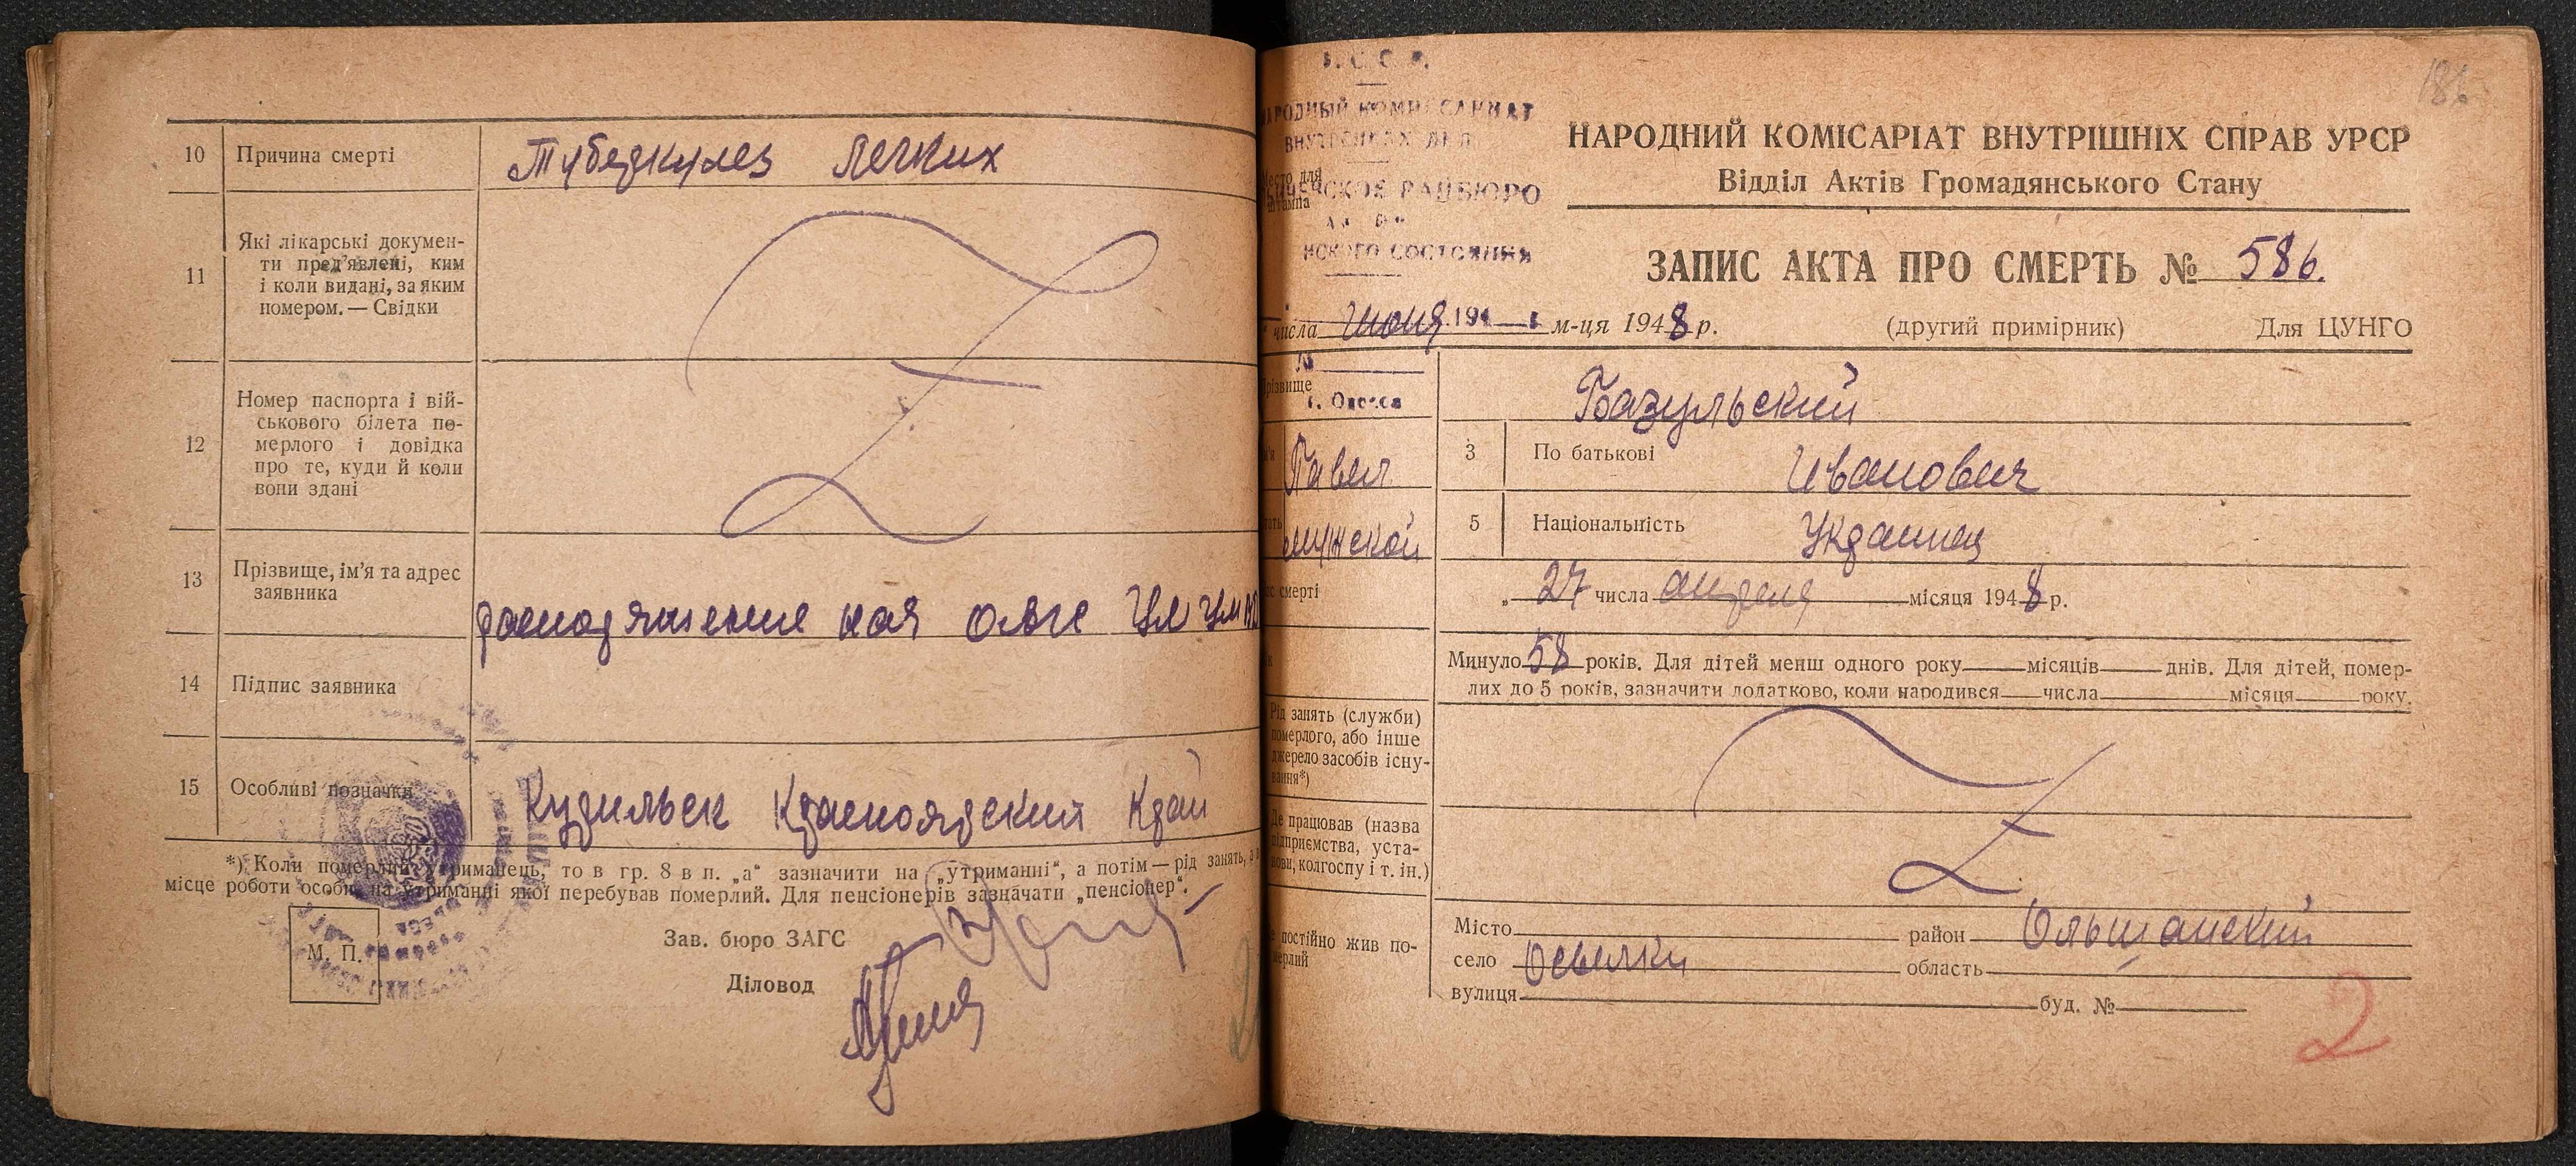 10 Причина смерті Туберкулез легких
11 Які лікарські докумен-
ти пред'явлені, ким
і коли видані, за яким
номером. — Свідки
12 Номер паспорта і вій-
ськового білета по-
мерлого і довідка
про те, куди й коли
вони здані
13 Прізвище, ім'я та адрес
заявника
14 Підпис заявника
15 Особливі позначки Красноярский край
*) Коли померлий утриманець, то в гр. 8 в п. „а“ зазначити на „утриманні“, а потім — рід занять, а в
місце роботи особи, на утриманні якої перебував померлий. Для пенсіонерів зазначати „пенсіонер“.
М. П.
Зав. бюро ЗАГС
Діловод
186
НАРОДНЫЙ КОМИССАРИАТ
ВНУТРЕННИХ ДЕЛ
РАЙБЮРО
СОСТОЯНИЯ
г. Одесса
Место для
штампа
НАРОДНИЙ КОМІСАРІАТ ВНУТРІШНІХ СПРАВ УРСР
Відділ Актів Громадянського Стану
ЗАПИС АКТА ПРО СМЕРТЬ № 586.
числа Июня м-ця 1948 р. (другий примірник) Для ЦУНГО
Прізвище Базульский
Павел 3 По батькові Иванович
мужской 5 Національність Украинец
смерті „ 27 числа апреля місяця 1948 р.
Минуло 58 років. Для дітей менш одного року місяців днів. Для дітей, помер-
лих до 5 років, зазначити додатково, коли народився числа місяця року.
Рід занять (служби)
померлого, або інше
джерело засобів існу-
вання*)
Де працював (назва
підприємства, уста-
нови, колгоспу і т. ін.)
постійно жив по-
мерлий
Місто район Ольшанский
село Осьилки область
вулиця буд. №
2